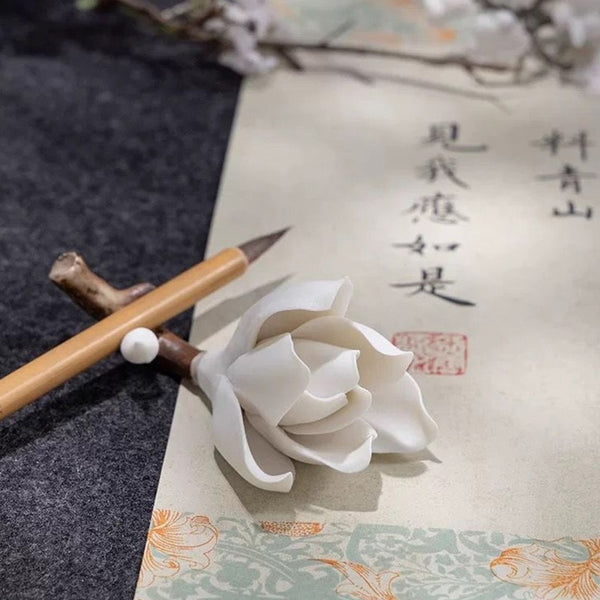 料青山
見我應如是